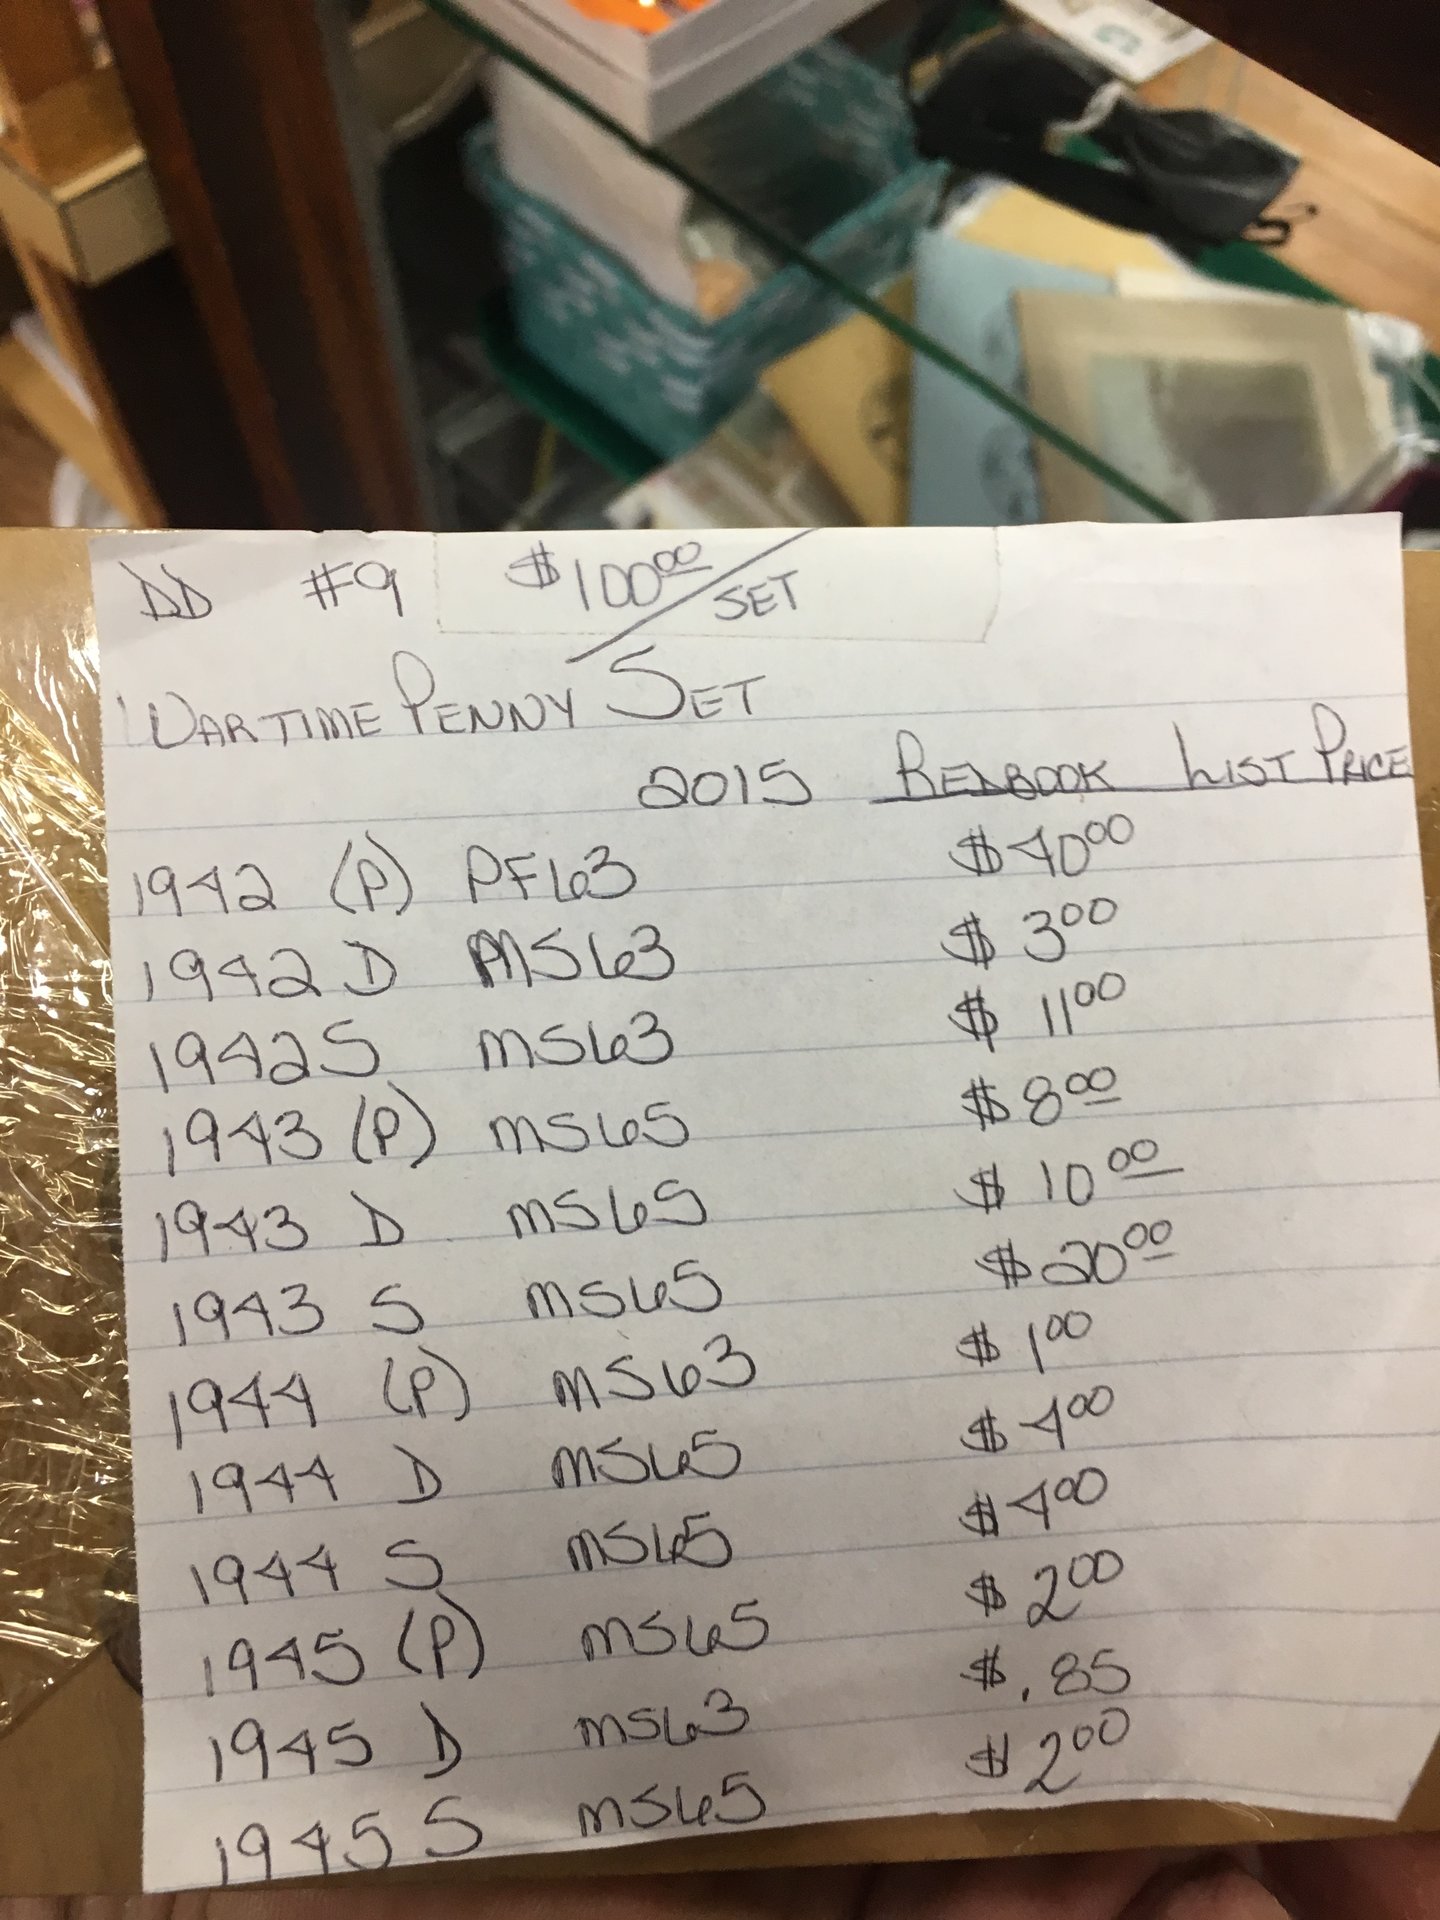 DD #9 $100.00/SET
WARTIME PENNY SET
2015 REDBOOK LIST PRICE
1942 (P) PF63 $40.00
1942 D MS63 $3.00
1942 S MS63 $11.00
1943 (P) MS65 $8.00
1943 D MS65 $10.00
1943 S MS65 $20.00
1944 (P) MS63 $1.00
1944 D MS65 $4.00
1944 S MS65 $4.00
1945 (P) MS65 $2.00
1945 D MS63 $.85
1945 S MS65 $2.00